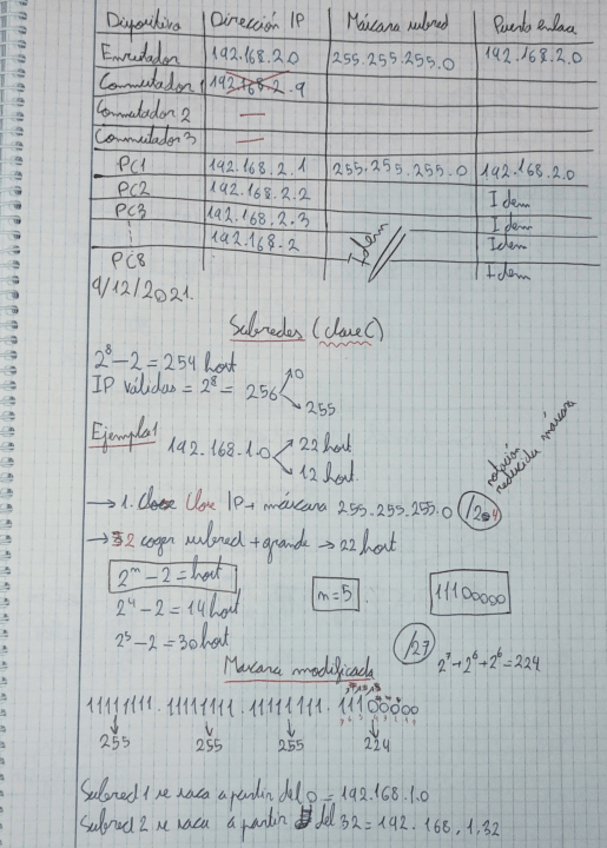 Dispositivo Dirección IP Máscara subred Puerta enlace
Enrutador 192.168.2.0 255.255.255.0 192.168.2.0
Conmutador 1 192.168.2.9
Conmutador 2 —
Conmutador 3 —
PC1 192.168.2.1 255.255.255.0 192.168.2.0
PC2 192.168.2.2 Idem
PC3 192.168.2.3 Idem
192.168.2 Idem Idem
PC8 Idem
9/12/2021.
Subredes (clase C)
2⁸-2 = 254 host
IP válidas = 2⁸ = 256 0
255
Ejemplo1 192.168.1.0 22 host
12 host
notación reducida máscara
→ 1. Clase IP → máscara 255.255.255.0 /24
→ 2 coger subred + grande → 22 host
2ⁿ-2 = host n=5 11100000
2⁴-2 = 14 host
2⁵-2 = 30 host
/27 2⁷+2⁶+2⁶=224
Mascara modificada
11111111.11111111.11111111.11100000
255 255 255 224
Subred 1 se saca a partir del 0 = 192.168.1.0
Subred 2 se saca a partir del 32 = 192.168.1.32